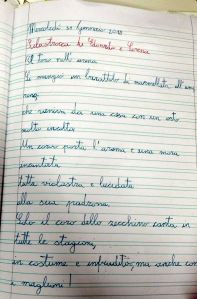 Mercoledì 30 Gennaio 2018
Filastrocca di Edoardo e Serena
Il toro nell'arena
si mangiò un barattolo di marmellata all'am
rena,
che veniva da una casa con un orto
molto
Un corvo porta l'aroma e una mora
incantata
tutta violastra e lucidata
alla sua padrona.
Solo il coro dello zecchino canta in
tutte le stagioni,
in costume e infreddito, ma anche con
i maglioni!